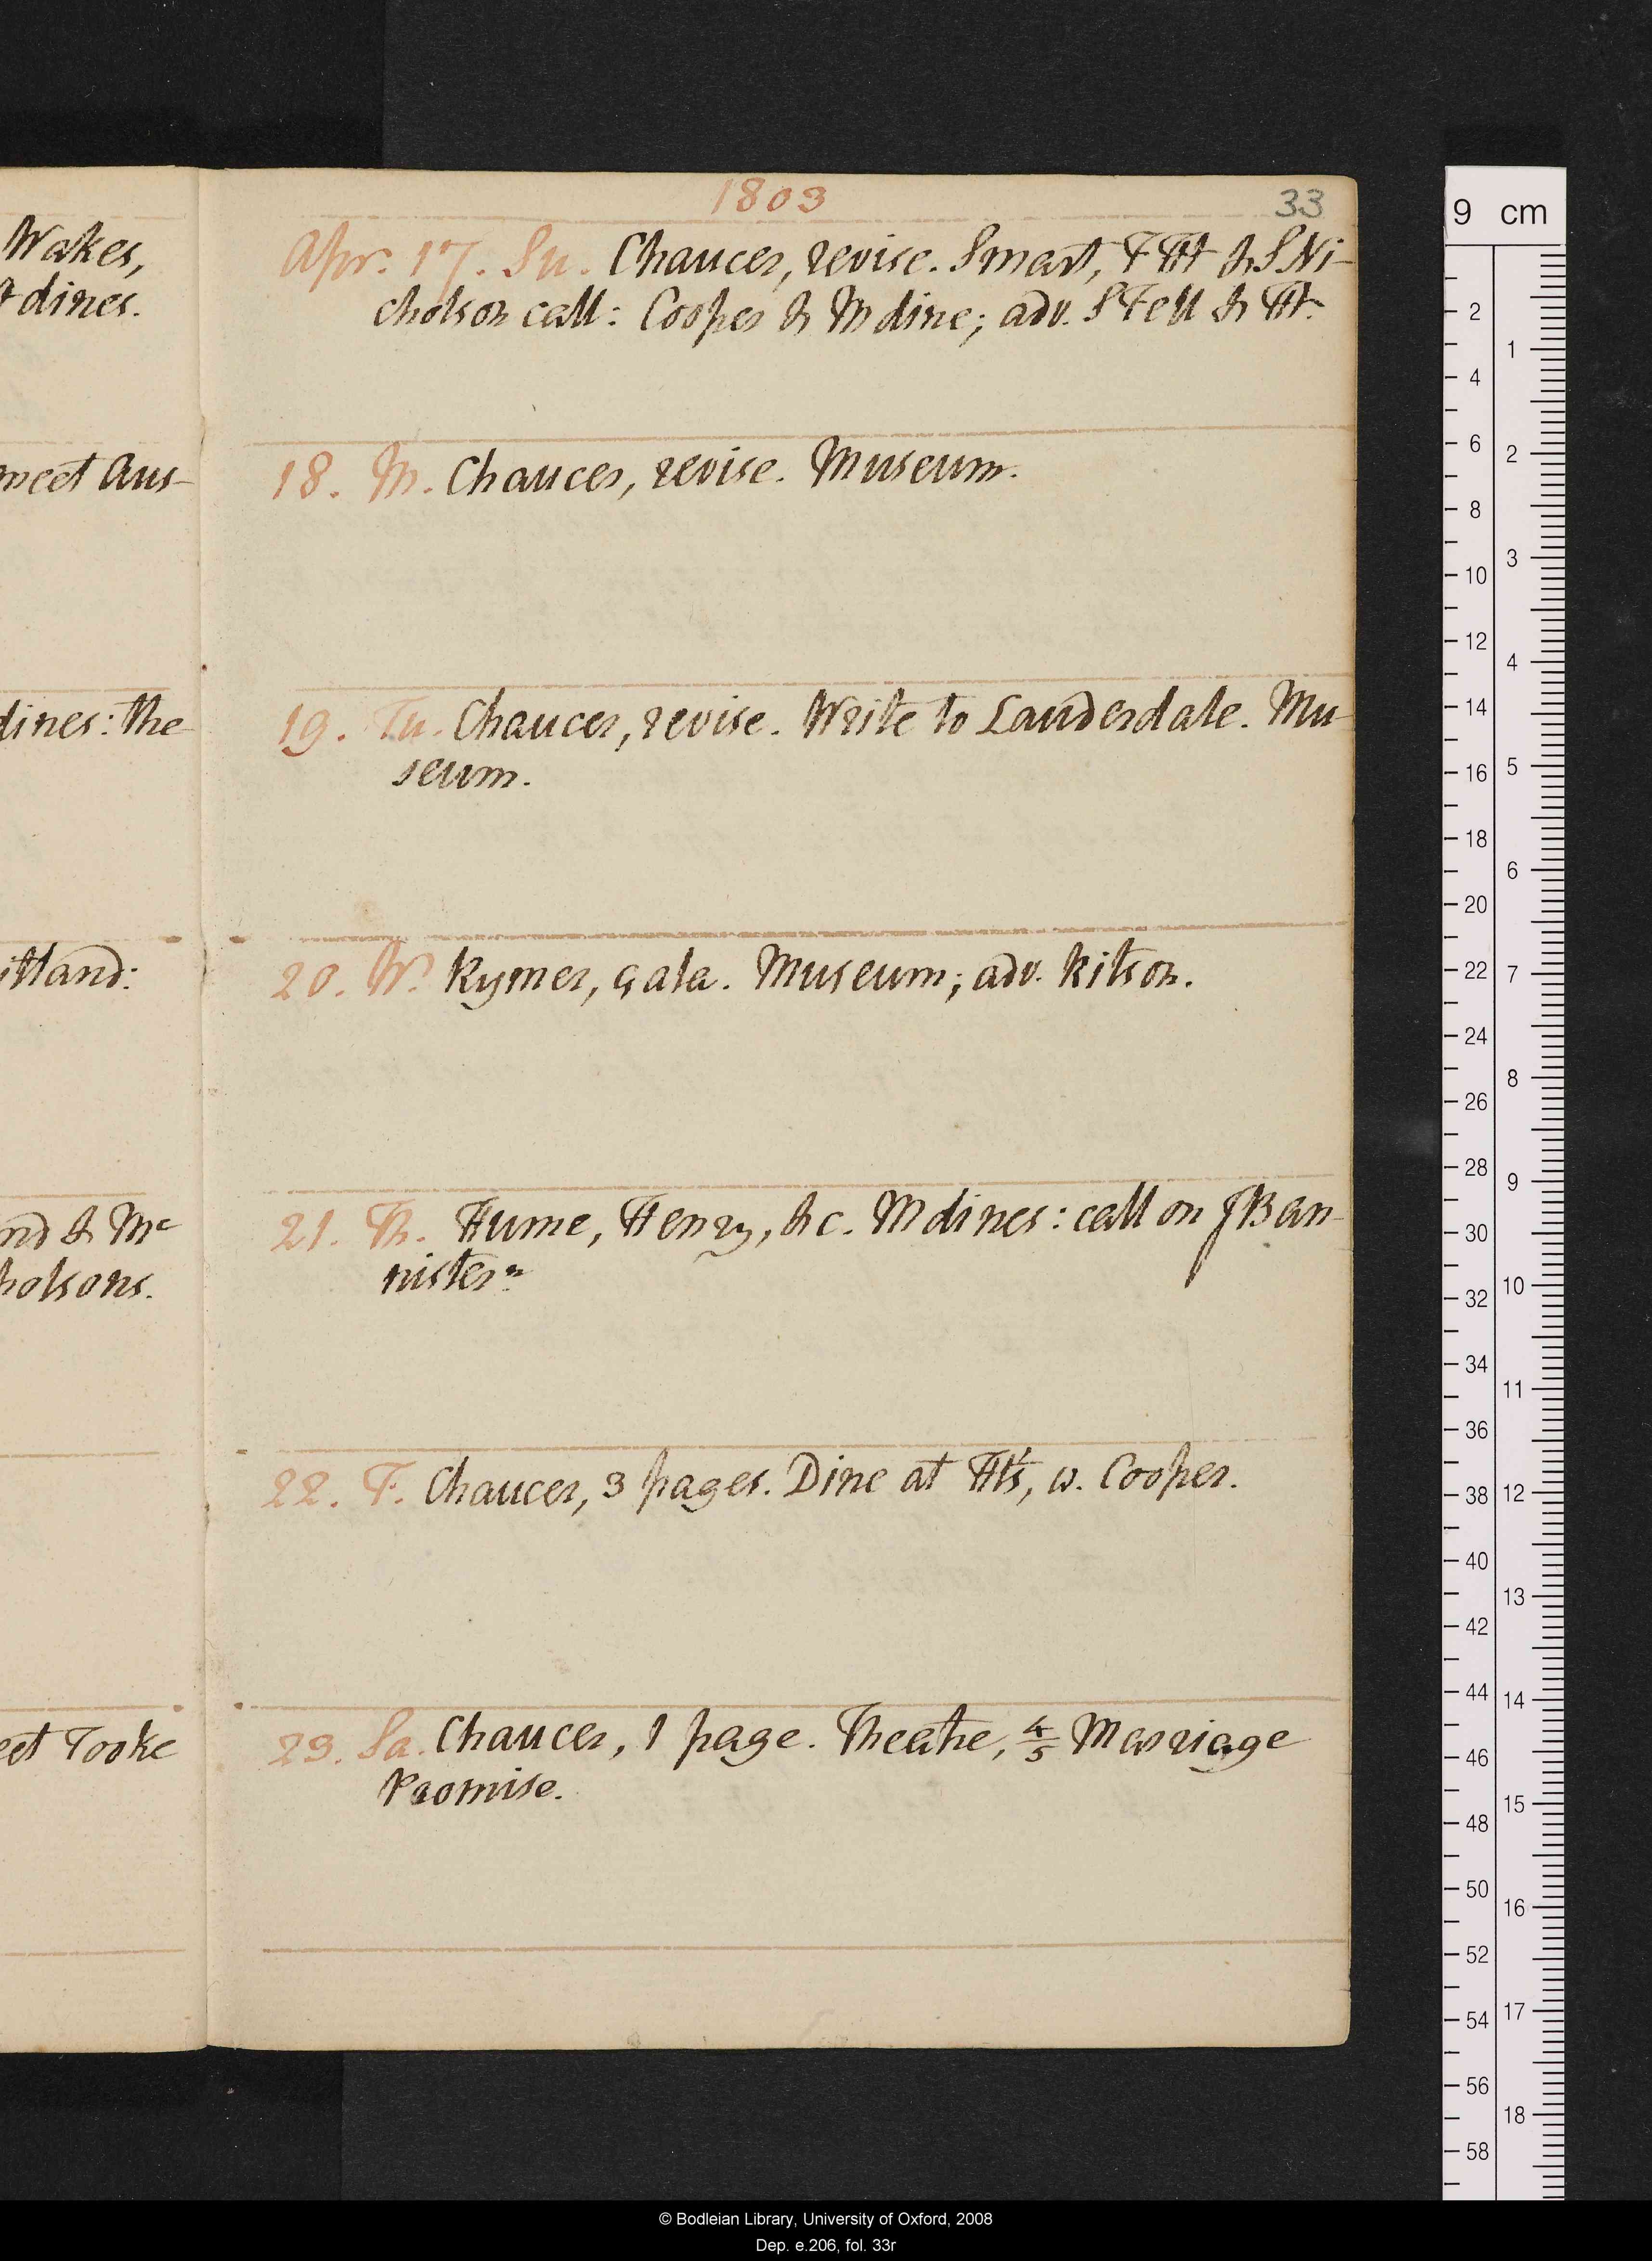 Wakes,
dines.
meet Aus-
dines: the-
itland:
nd & Mc
holsons.
et Tooke
1803
33
Apr. 17. Su. Chaucer, revise. Smart, F Ht & S Ni-
cholson call: Cooper & M dine; adv. S Fell & Ht.
18. M. Chaucer, revise. Museum.
19. Tu. Chaucer, revise. Write to Lauderdale. Mu-
seum.
20. W. Rymer, ça la. Museum; adv. Ritson.
21. Th. Hume, Henry, &c. M dines: call on J Ban-
nister n
22. F. Chaucer, 3 pages. Dine at Ht's, w. Cooper.
23. Sa. Chaucer, 1 page. Theatre, 4/5 Marriage
Promise.
9 cm
2
4
6
8
10
12
14
16
18
20
22
24
26
28
30
32
34
36
38
40
42
44
46
48
50
52
54
56
58
1
2
3
4
5
6
7
8
9
10
11
12
13
14
15
16
17
18
© Bodleian Library, University of Oxford, 2008
Dep. e.206, fol. 33r